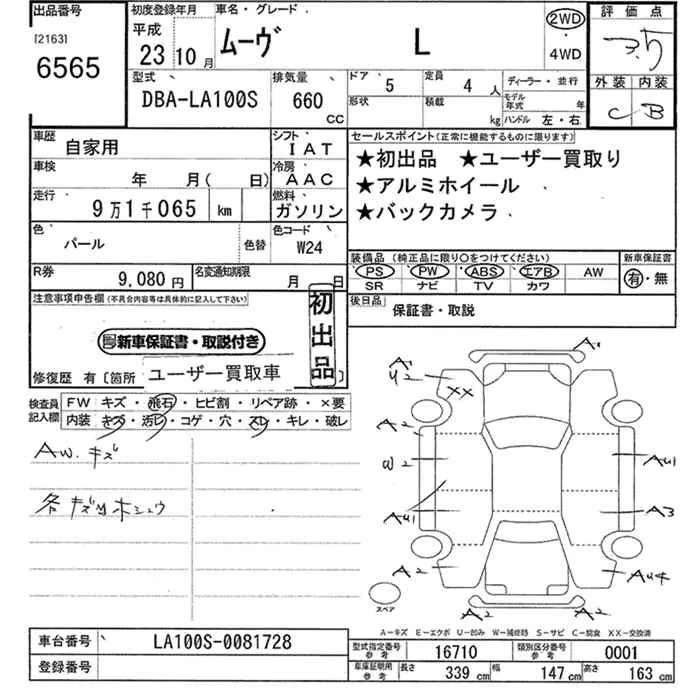 出品番号 初度登録年月 車名・グレード 評価点
[2163] 平成 ムーヴ L 2WD
6565 23 10月 ・ 4WD 3.5
型式 排気量 ドア 5 定員 4 人 ディーラー・並行 外装 内装
DBA-LA100S 660 CC 形状 積載 kg モデル年式 年 C B
ハンドル 左・右
車歴 自家用 シフト IAT セールスポイント(正常に機能するものに限ります)
車検 年 月( 日) 冷房 AAC ★初出品 ★ユーザー買取り
走行 9万1千065 km 燃料 ガソリン ★アルミホイール
★バックカメラ
色 パール 色替 色コード W24
装備品(純正品に限り○をつけてください) 新車保証書
R券 9,080円 名変通知期限 月 日 PS PW ABS エアB AW 有・無
SR ナビ TV カワ
注意事項申告欄(不具合内容等は具体的に記入して下さい) 初出品 後日品 保証書・取説
新車保証書・取説付き
修復歴 有〔箇所 ユーザー買取車 〕
検査員記入欄 FW キズ・飛石・ヒビ割・リペア跡・×要
内装 キズ・汚レ・コゲ・穴・スレ・キレ・破レ
AW.キズ
各キズ凹ホシュウ
A1 A1
U2 XX
A2
W2 AU1
AU1 A3
A2 AU4
A2 A2
スペア
A-キズ E-エクボ U-凹み W-補修跡 S-サビ C-腐食 XX-交換済
車台番号 LA100S-0081728 型式指定番号 参考 16710 類別区分番号 参考 0001
登録番号 車庫証明用 参考 長さ 339 cm 幅 147 cm 高さ 163 cm